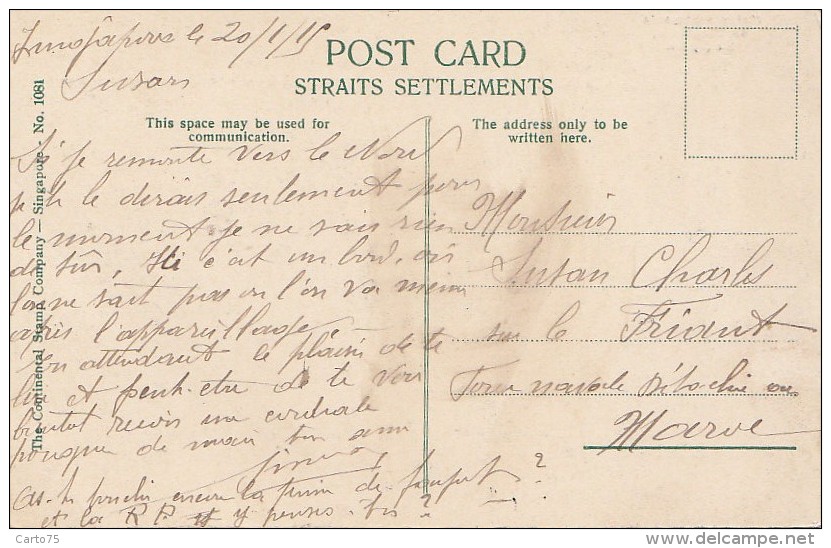 le 20/1/15
POST CARD
STRAITS SETTLEMENTS
This space may be used for
communication.
The address only to be
written here.
The Continental Stamp Company — Singapore - No. 1081
Si je remonte vers le Nord
je le dirais seulement pour
le moment je ne sais rien
de sûr, c'est un bord, où
l'on ne sait pas ou l'on va même
après l'appareillage.
En attendant le plaisir de te
lire et peut-être de te voir
bientôt reçois une cordiale
poignée de main ton ami
encore la de
et la R P y penses-tu?
Monsieur
Susan Charles
sur le Friant
navale détachée au
Maroc
Carto75
www.delcampe.net